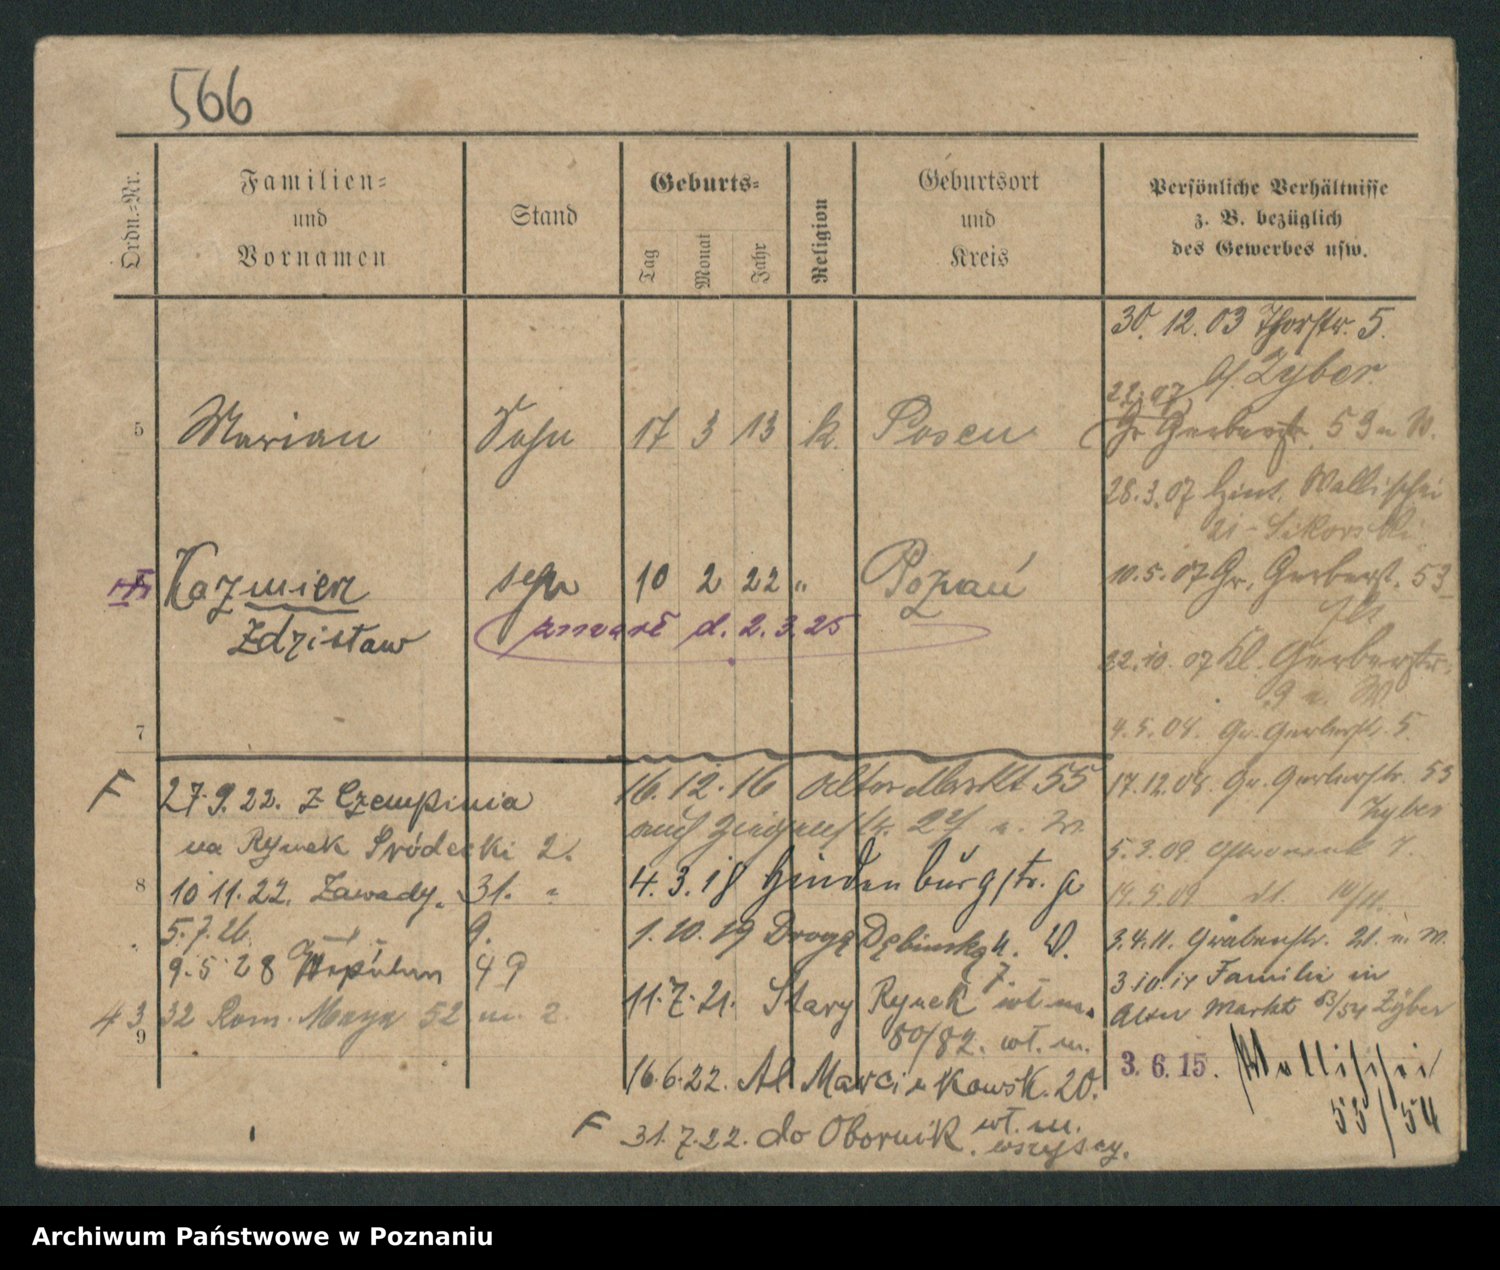 566
Ordn.-Nr.
Familien-
und
Vornamen
Stand
Geburts-
Tag
Monat
Jahr
Religion
Geburtsort
und
Kreis
Persönliche Verhältnisse
z. B. bezüglich
des Gewerbes usw.
5 Marian Sohn 17 3 13 k. Posen
Kazmierz syn 10 2 22 " Poznań
Zdzisław
zmarł d. 2.3.25
7
F 27.9.22. z Czempinia
na Rynek Śródecki 2.
8 10 11.22. Zawady. 31.
5.7.26. 9.
9.5.28 49
43 32 Rom. Maya 52 m. 2.
9
16.12.16 Alter Markt 55
auch Ziegenstr. 24 n. W.
4.3.18 Hindenburgstr. 9
1.10.19 Droga Dębinska 4. W.
7.
11.7.21. Stary Rynek wł. m.
80/82. wł. m.
16.6.22. Al Marcinkowsk. 20.
F 31.7.22. do Obornik wł. m.
wszyscy.
30.12.03 Thorstr. 5.
b/ Zyber.
Gr Gerberstr. 53 n W.
28.3.07 Hint. Wallischei
21 - Sikorski
10.5.07 Gr. Gerberst. 53
22.10.07 Kl. Gerberstr.
9 n. W.
4.5.08. Gr. Gerberstr. 5
17.12.08. Gr. Gerberstr. 53
Zyber
5.3.09 7.
3.4.11. Grabenstr. 21. n. W.
3.10.14 Familie in
Alter Markt 53/54 Zyber
3.6.15. Wallischei
53/54
Archiwum Państwowe w Poznaniu